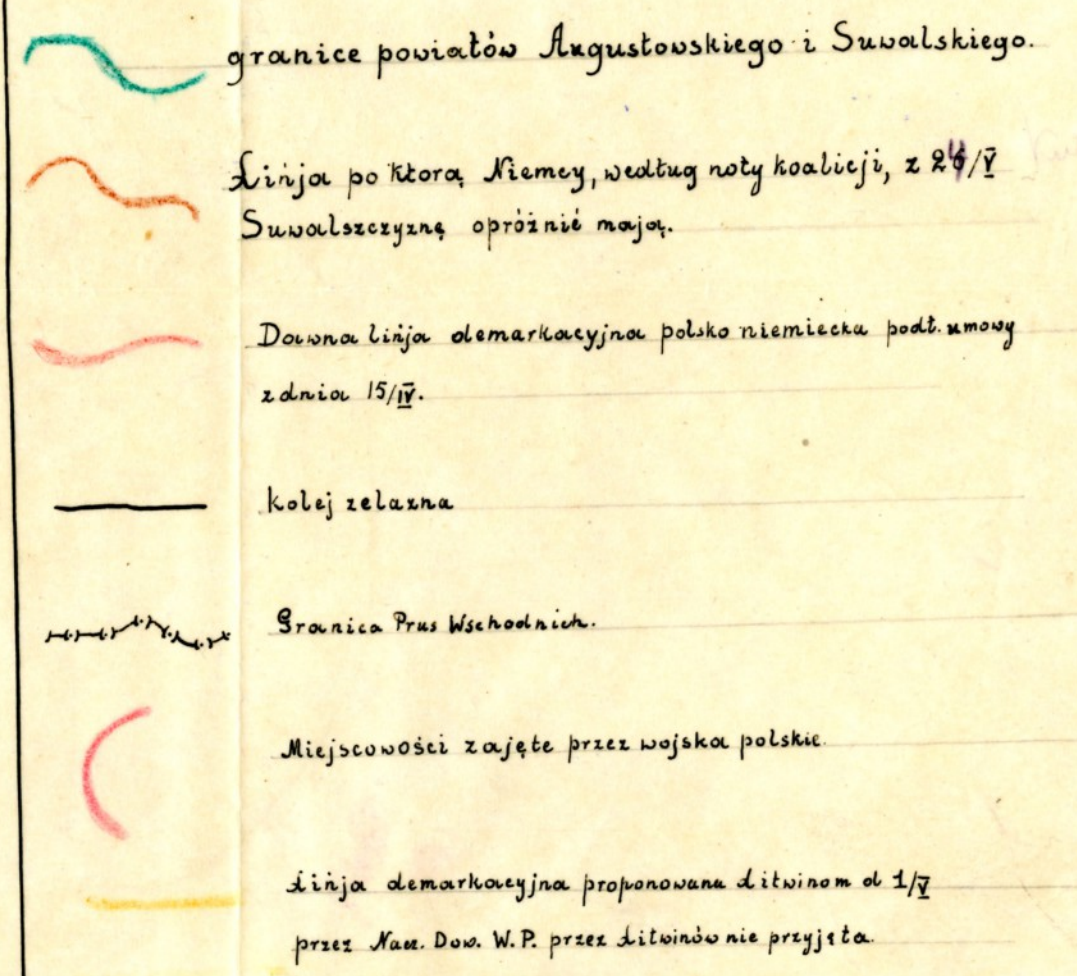 granice powiatów Augustowskiego i Suwalskiego.
Linja po ktorą Niemcy, według noty koalicji, z 24/V
Suwalszczyznę opróżnić mają.
Dawna linja demarkacyjna polsko niemiecka podł. umowy
z dnia 15/IV.
kolej zelazna
Granica Prus Wschodnich.
Miejscowości zajęte przez wojska polskie.
Linja demarkacyjna proponowana Litwinom d 1/V
przez Nacz. Dow. W.P. przez Litwinów nie przyjęta.